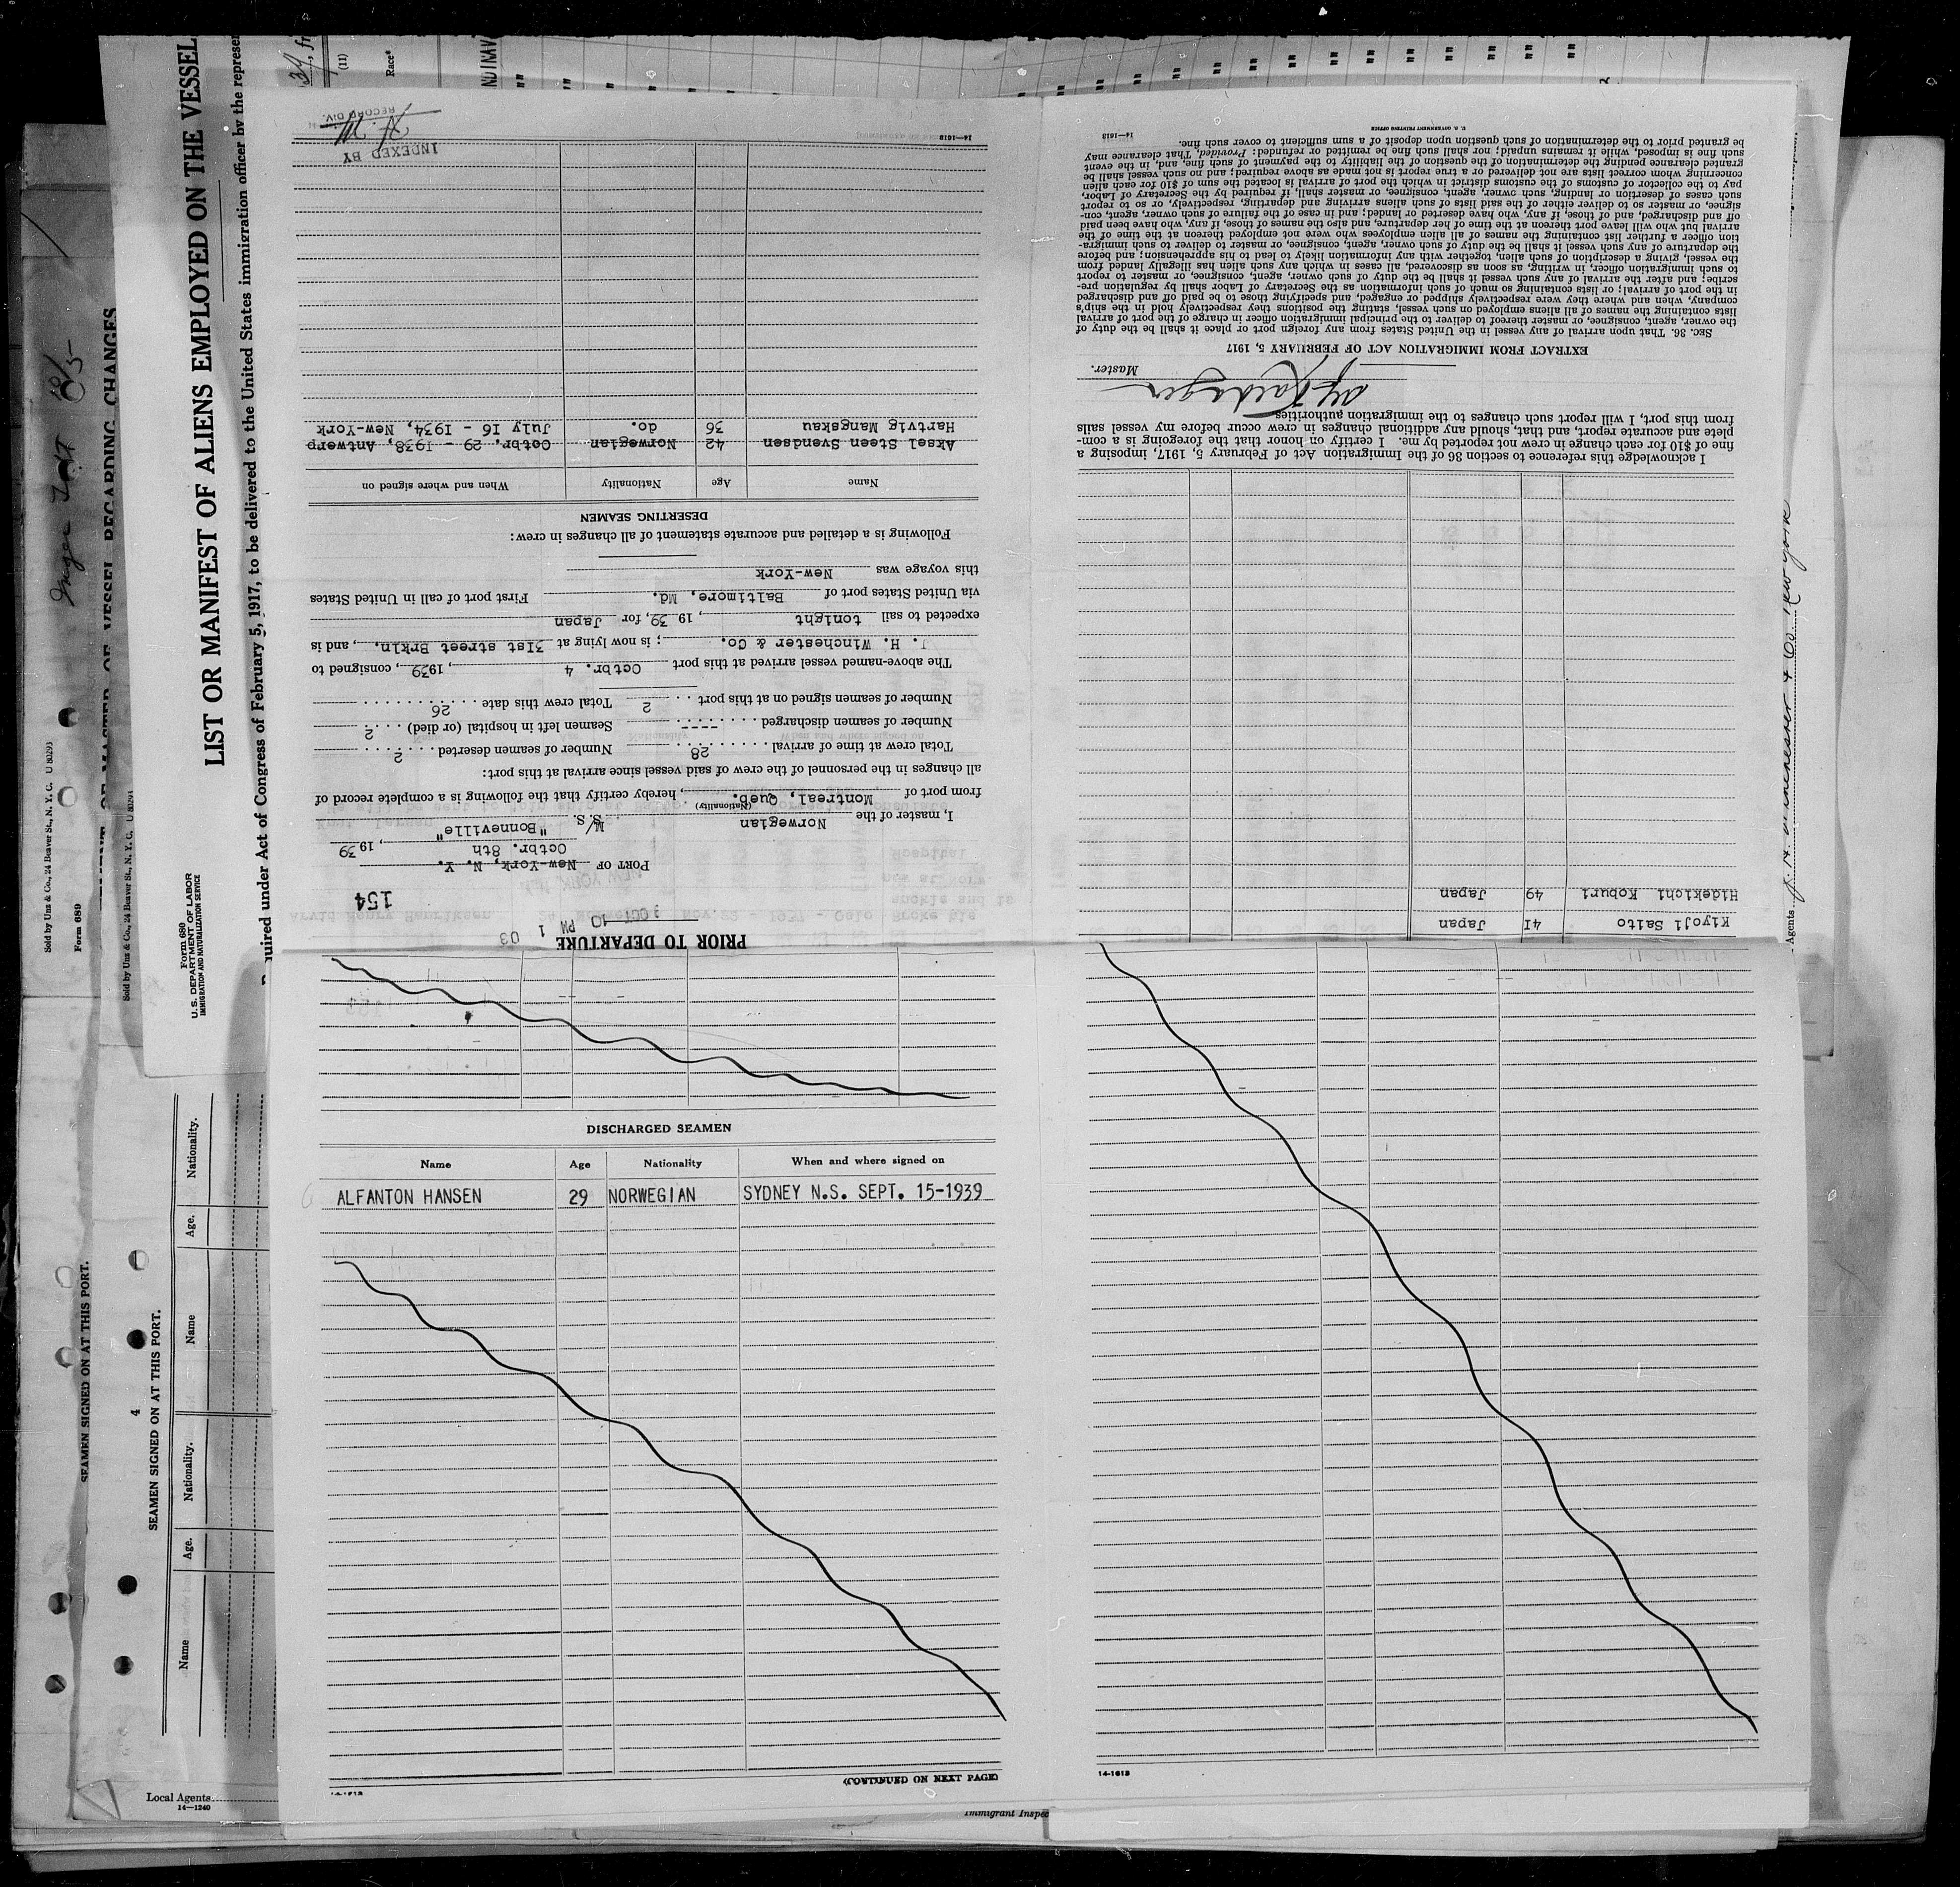 PRIOR TO DEPARTURE
154
PORT OF New-York, N. Y.
Octbr. 8th, 1939
I, master of the Norwegian M/S. S.S. "Bonneville"
(Nationality)
from port of Montreal, Queb., hereby certify that the following is a complete record of
all changes in the personnel of the crew of said vessel since arrival at this port:
Total crew at time of arrival 28 Number of seamen deserted 2
Number of seamen discharged ---- Seamen left in hospital (or died) 2
Number of seamen signed on at this port 2 Total crew this date 26
The above-named vessel arrived at this port Octbr. 4, 1939, consigned to
J. H. Winchester & Co. ; is now lying at 31st street Brkln., and is
expected to sail tonight, 1939, for Japan
via United States port of Baltimore, Md. First port of call in United States
this voyage was New-York
Following is a detailed and accurate statement of all changes in crew:
DESERTING SEAMEN
Name Age Nationality When and where signed on
Aksel Steen Svendsen 42 Norwegian Octbr. 29 - 1938, Antwerp
Hartvig Mangskau 36 do. July 16 - 1934, New-York
INDEXED BY
RECORD DIV.
14—1618
Kiyoji Saito 41 Japan
Hidekichi Koburi 49 Japan
I acknowledge this reference to section 36 of the Immigration Act of February 5, 1917, imposing a
fine of $10 for each change in crew not reported by me. I certify on honor that the foregoing is a com-
plete and accurate report, and that, should any additional changes in crew occur before my vessel sails
from this port, I will report such changes to the immigration authorities.
Master.
EXTRACT FROM IMMIGRATION ACT OF FEBRUARY 5, 1917
SEC. 36. That upon arrival of any vessel in the United States from any foreign port or place it shall be the duty of
the owner, agent, consignee, or master thereof to deliver to the principal immigration officer in charge of the port of arrival
lists containing the names of all aliens employed on such vessel, stating the positions they respectively hold in the ship's
company, when and where they were respectively shipped or engaged, and specifying those to be paid off and discharged
in the port of arrival; or lists containing so much of such information as the Secretary of Labor shall by regulation pre-
scribe; and after the arrival of any such vessel it shall be the duty of such owner, agent, consignee, or master to report
to such immigration officer, in writing, as soon as discovered, all cases in which any such alien has illegally landed from
the vessel, giving a description of such alien, together with any information likely to lead to his apprehension; and before
the departure of any such vessel it shall be the duty of such owner, agent, consignee, or master to deliver to such immigra-
tion officer a further list containing the names of all alien employees who were not employed thereon at the time of the
arrival but who will leave port thereon at the time of her departure, and also the names of those, if any, who have been paid
off and discharged, and of those, if any, who have deserted or landed; and in case of the failure of such owner, agent, con-
signee, or master so to deliver either of the said lists of such aliens arriving and departing, respectively, or so to report
such cases of desertion or landing, such owner, agent, consignee, or master shall, if required by the Secretary of Labor,
pay to the collector of customs of the customs district in which the port of arrival is located the sum of $10 for each alien
concerning whom correct lists are not delivered or a true report is not made as above required; and no such vessel shall be
granted clearance pending the determination of the question of the liability to the payment of such fine, and, in the event
such fine is imposed, while it remains unpaid; nor shall such fine be remitted or refunded: Provided, That clearance may
be granted prior to the determination of such question upon deposit of a sum sufficient to cover such fine.
U. S. GOVERNMENT PRINTING OFFICE 14—1618
DISCHARGED SEAMEN
Name Age Nationality When and where signed on
ALFANTON HANSEN 29 NORWEGIAN SYDNEY N.S. SEPT. 15-1939
(CONTINUED ON NEXT PAGE)
14-1618
Immigrant Inspec
LIST OR MANIFEST OF ALIENS EMPLOYED ON THE VESSEL
uired under Act of Congress of February 5, 1917, to be delivered to the United States immigration officer by the represen
Form 680
U. S. DEPARTMENT OF LABOR
IMMIGRATION AND NATURALIZATION SERVICE
(11)
Race*
Sold by Unz & Co., 24 Beaver St., N. Y. C.
Form 689
Sold by Unz & Co., 24 Beaver St., N. Y. C.
OF VESSEL REGARDING CHANGES
SEAMEN SIGNED ON AT THIS PORT.
4
SEAMEN SIGNED ON AT THIS PORT.
Name Age. Nationality. Name Age. Nationality.
Local Agents
14—1240
Agents J. H. Winchester & Co New York